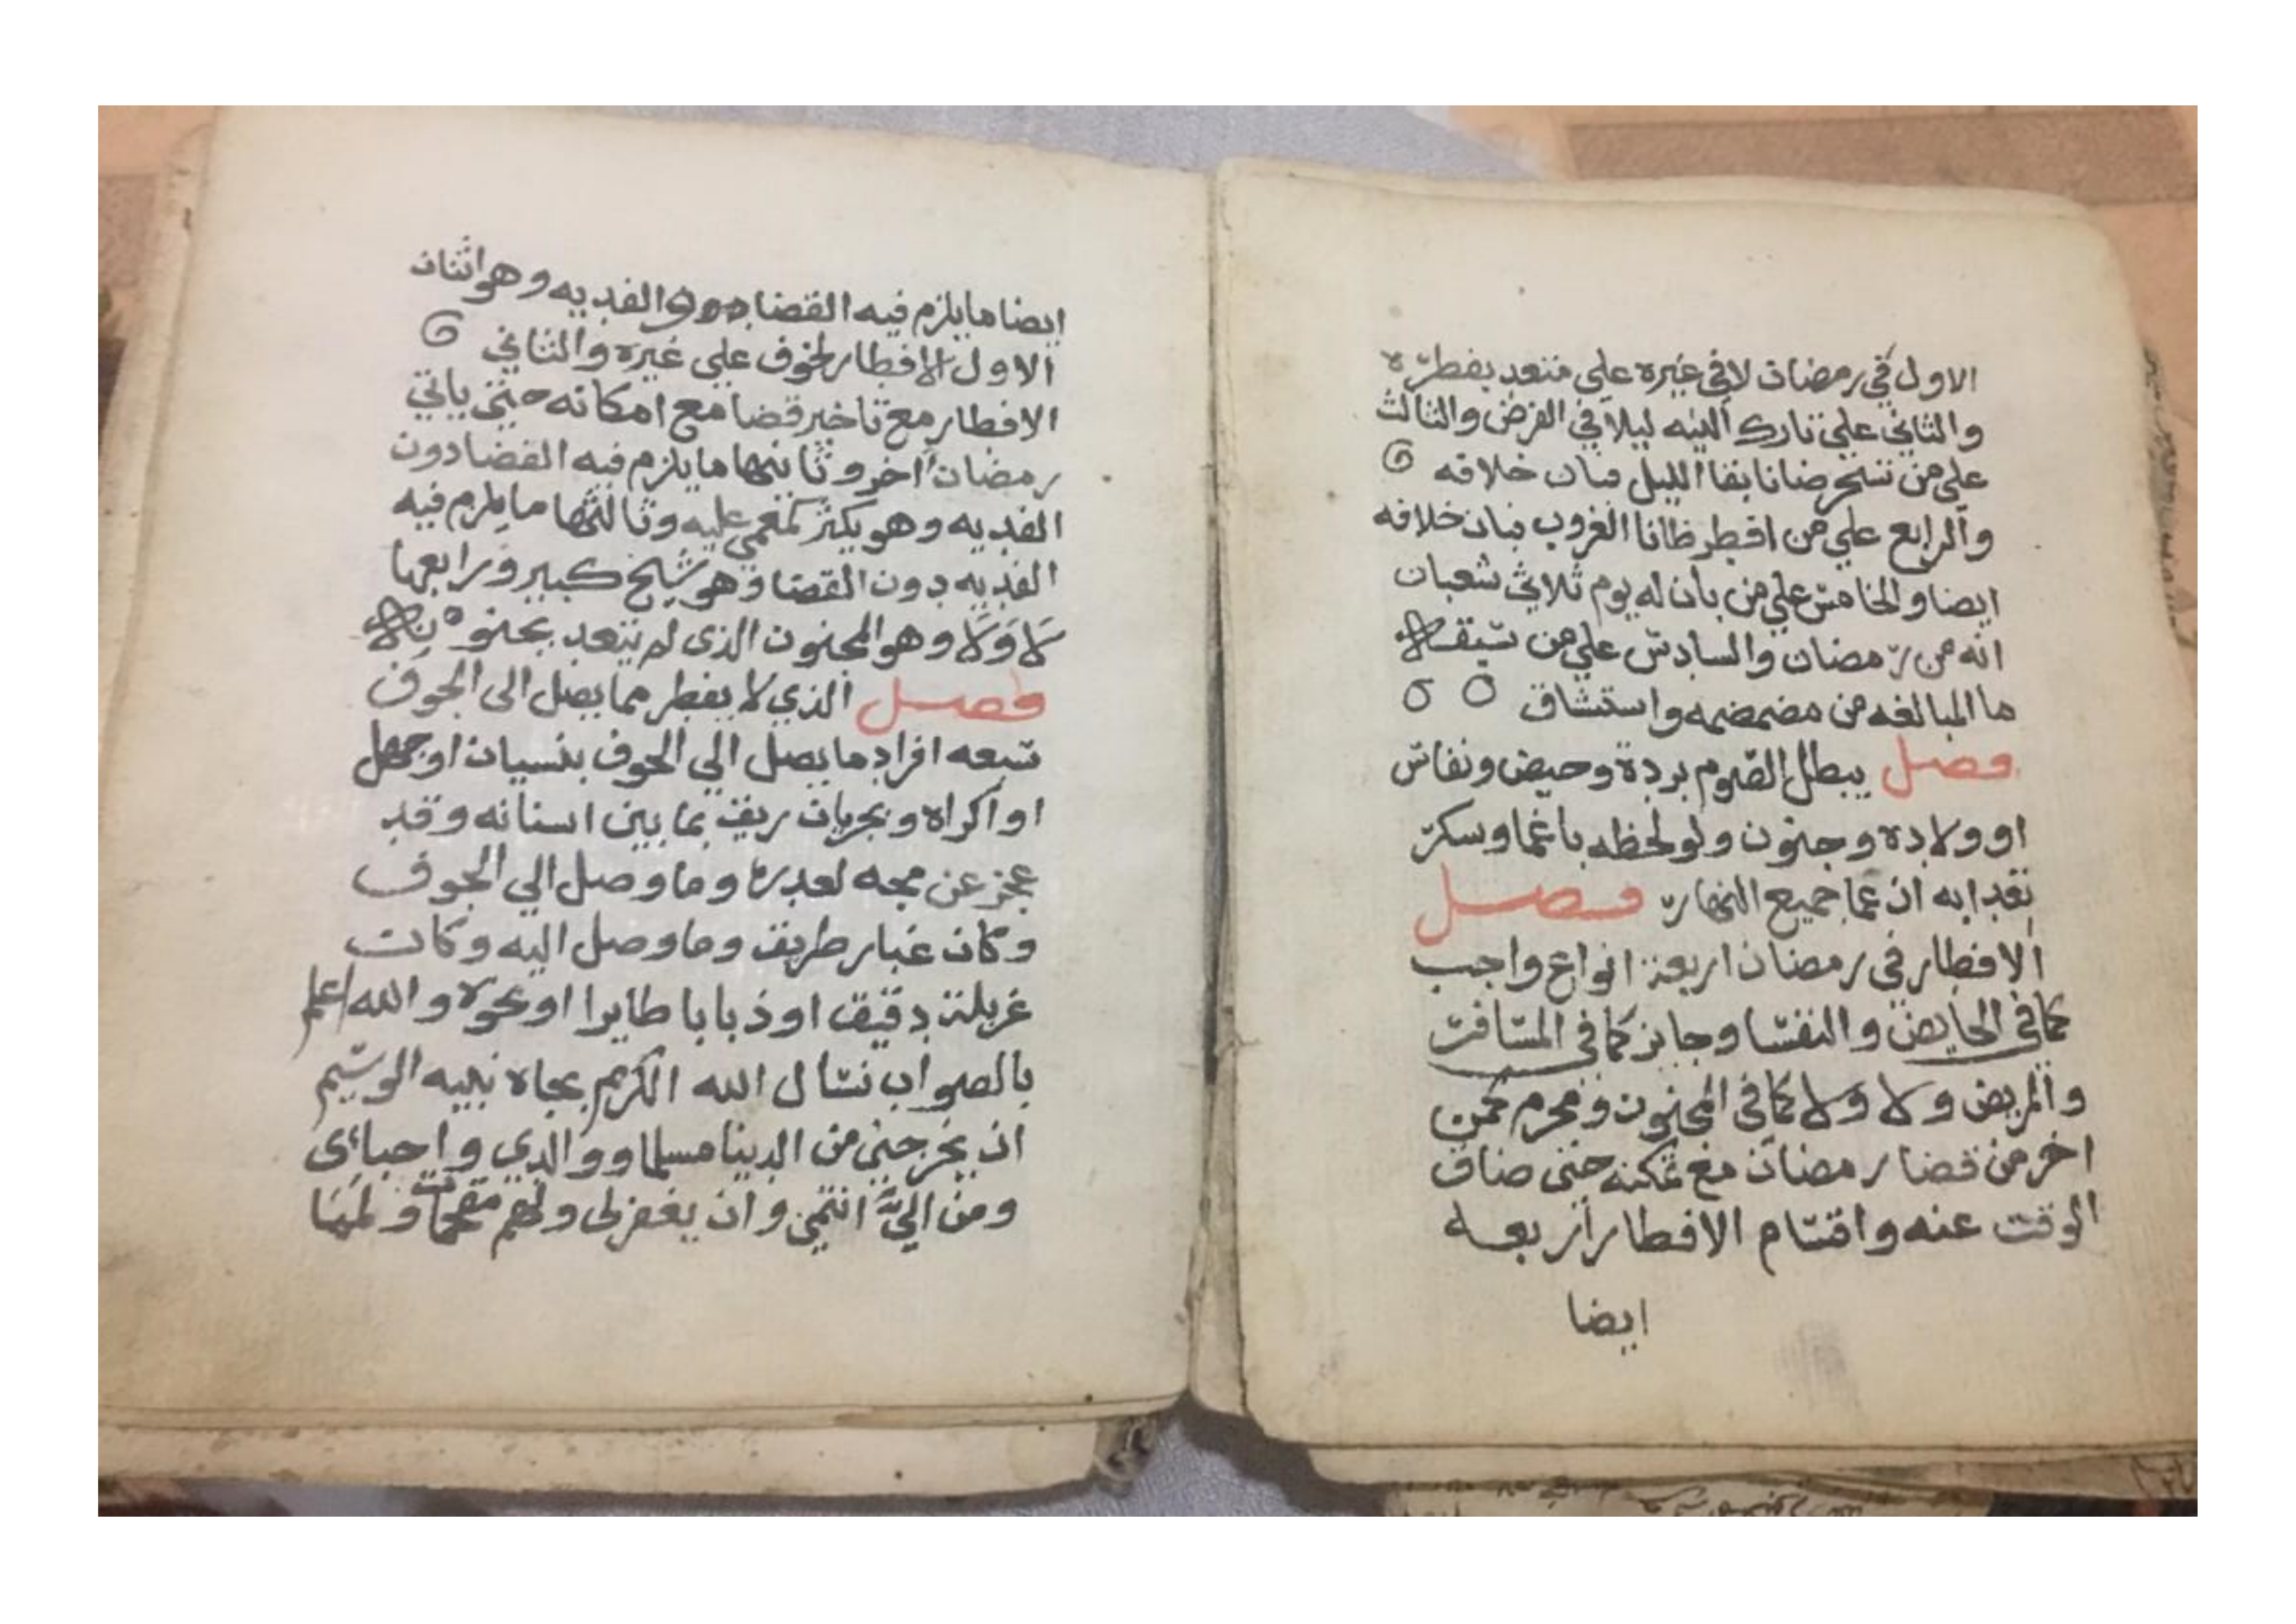 الاول في رمضان لا في غيره علي متعد بفطره
والثاني علي تارك النيه ليلا في الفرض والثالث
علي من تسحر ضانا بقا الليل فبان خلافه
والرابع علي من افطر ظانا الغروب فبان خلافه
ايضا والخامس علي من بان له يوم ثلاثي شعبان
انه من رمضان والسادس علي من سبقه
ما المبالغه من مضمضمه واستنشاق
فصل يبطل الصوم بردة وحيض ونفاس
او ولاده وجنون ولو لحظه باغما وسكر
تعدا به ان عما جميع النهار فصل
الافطار في رمضان اربعة انواع واجب
كما في الحايض والنفسا وجايز كما في المسافر
والمريض ولا ولا كما في المجنون ومحرم كمن
اخر من قضا رمضان مع تمكنه حتى ضاق
الوقت عنه واقسام الافطار اربعه
ايضا
ايضا ما يلزم فيه القضا والفديه وهو اثنان
الاول الافطار لخوف علي غيره والثاني
الافطار مع تاخير قضا مع امكانه حتي ياتي
رمضان اخر وثانيها ما يلزم فيه القضا دون
الفديه وهو يكثر كمغمي عليه وثالثها ما يلزم فيه
الفديه دون القضا وهو شيخ كبير ورابعها
لا ولا وهو المجنون الذى لم يتعد بجنونه
فصل الذي لا يفطر مما يصل الى الجوف
سبعه افراد ما يصل الي الجوف بنسيان او جهل
او اكراه وبجريان ريق بما بين اسنانه وقد
عجز عن مجه لعدره وما وصل الي الجوف
وكان غبار طريق وما وصل اليه وكان
غربلة دقيق او ذبابا طايرا او نحوه والله اعلم
بالصواب نسال الله الكريم بجاه نبيه الوسيم
ان يخرجني من الدينا مسلما ووالدي واحبائى
ومن اليَّ انتمي وان يغفر لى ولهم مقحمات ولمما